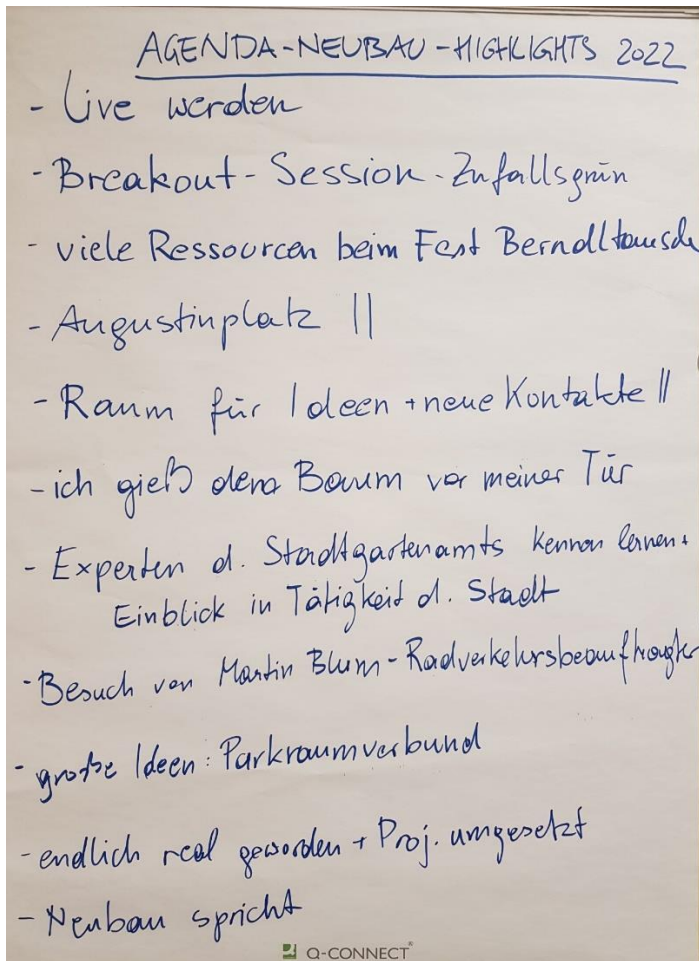 AGENDA-NEUBAU-HIGHLIGHTS 2022
- Live werden
- Breakout-Session-Zufallsgrün
- viele Ressourcen beim Fest
- Augustinplatz ||
- Raum für Ideen + neue Kontakte ||
- ich gieß den Baum vor meiner Tür
- Experten d. Stadtgartenamts kennen lernen +
Einblick in Tätigkeit d. Stadt
- Besuch von Martin Blum - Radverkehrsbeauftragter
- große Ideen: Parkraumverbund
- endlich real geworden + Proj. umgesetzt
- Neubau spricht
Q-CONNECT®